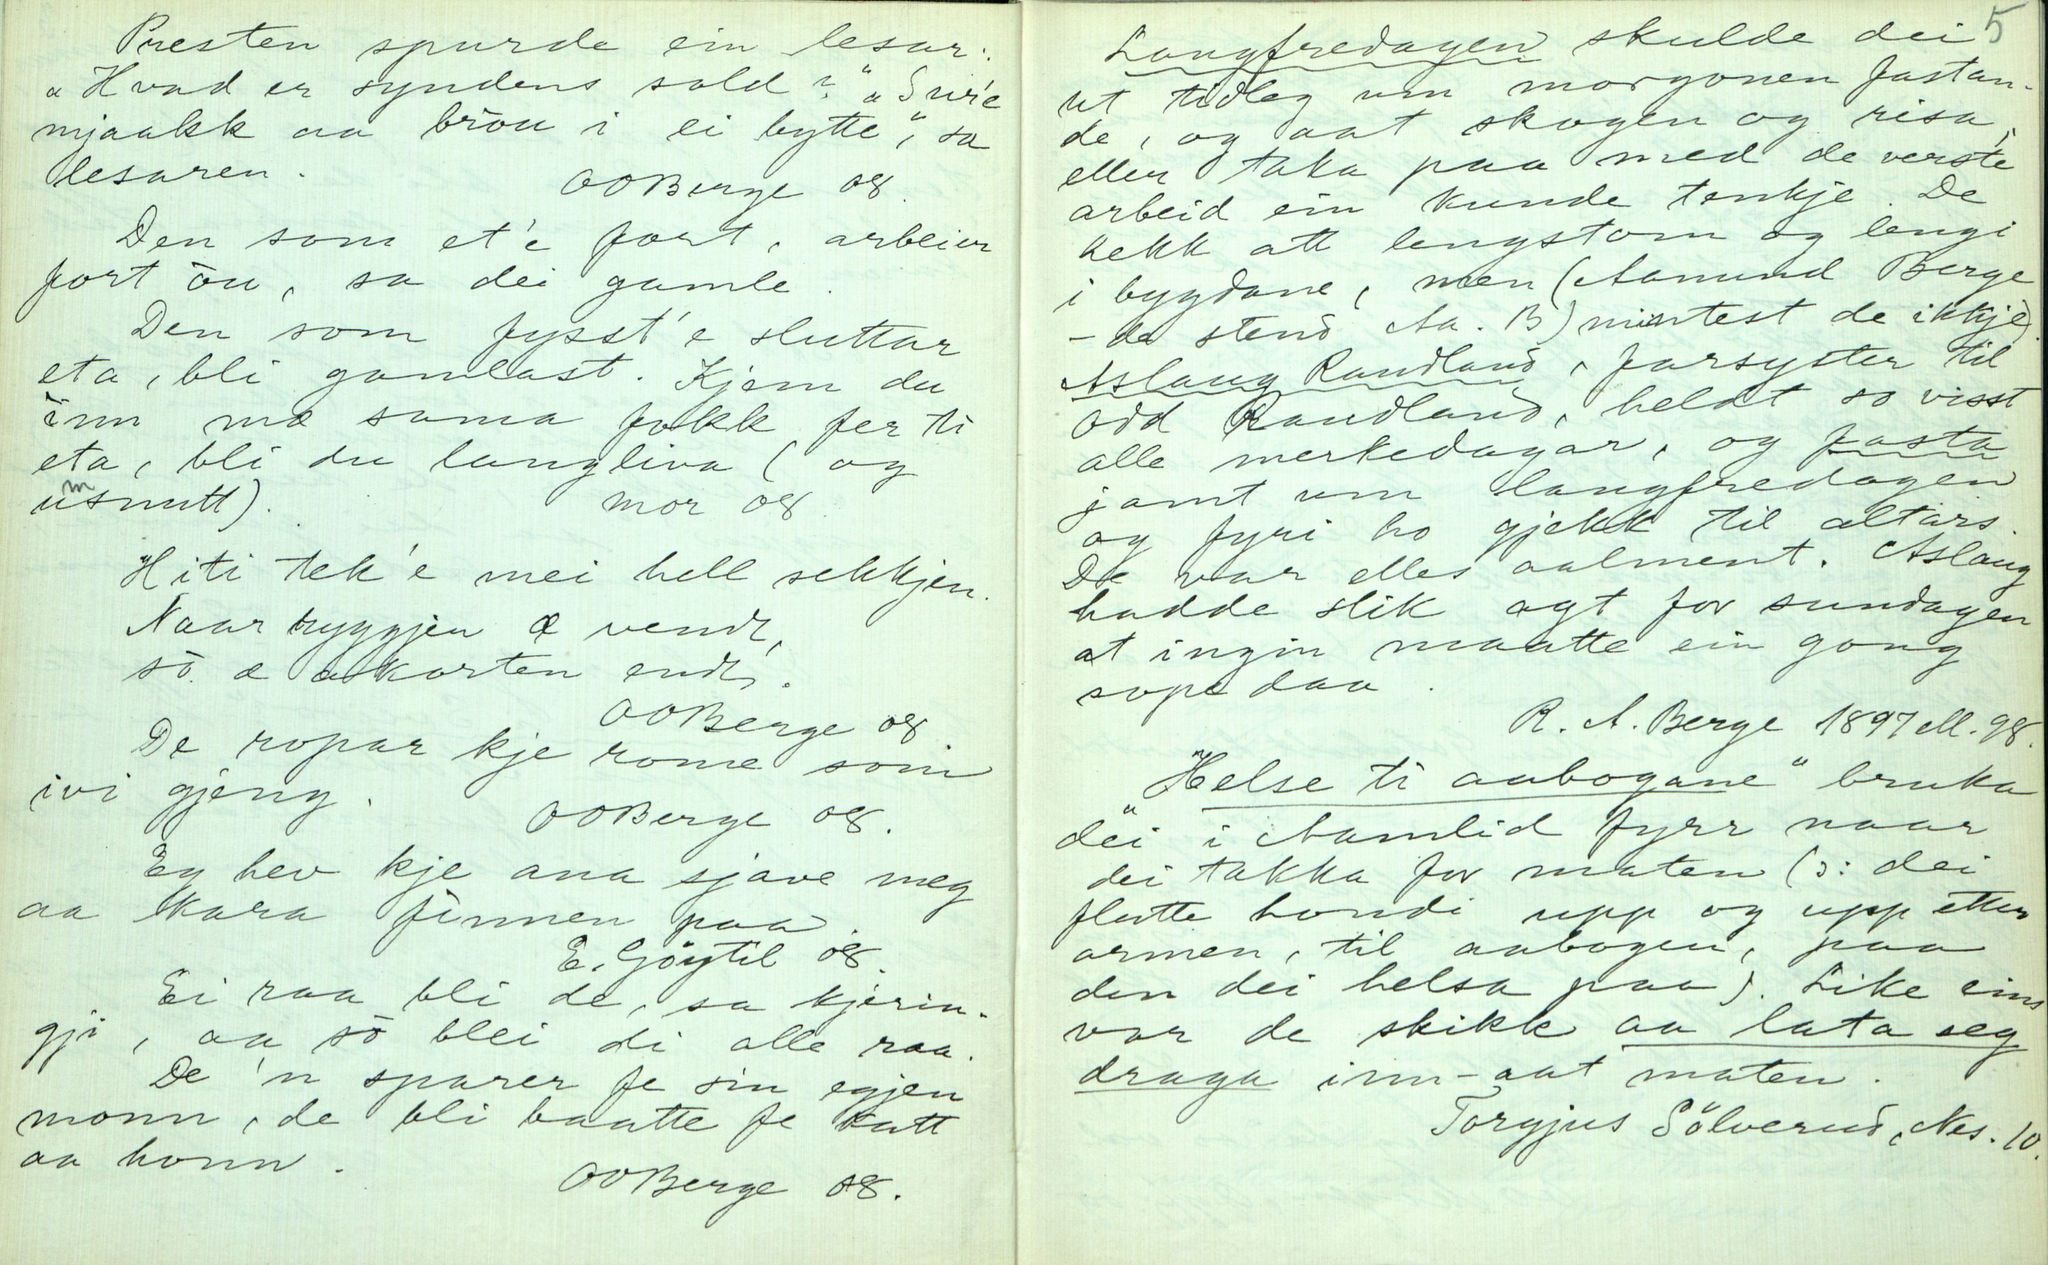 Presten spurde ein lesar:
„Hvad er syndens sold?" „Sur'e
mjaakk aa brou i ei bytte", sa
lesaren.
OOBerge 08.
Den som et'e fort, arbeier
fort òu, sa dei gamle.
Den som fysst'e sluttar
eta, bli gamlast. Kjem du
inn mæ sama fokk fer ti
eta, bli du langliva (og
umsnutt).
mor 08
Hiti tek'e mei hell sekkjen.
Naar ryggjen æ vendt,
so æ akorten endt.
OOBerge 08.
De ropar kje rome som
ivi gjeng.
OOBerge 08.
Eg hev kje ana sjave meg
aa kara finnen paa.
E. Göytil 08.
Ei raa bli de, sa kjerin-
gji, aa so blei di alle raa.
De 'n sparer fe sin egjen
monn, de bli baatte fe katt
aa honn.
OOBerge 08.
5
Langfredagen skulde dei
ut tidleg um morgonen fastan-
de, og aat skogen og risa,
eller taka paa med de verste
arbeid ein kunde tenkje. De
hekk att lengstom og lengi
i bygdane, men (Aamund Berge
- de stend Aa. B) mintest de ikkje).
Aslaug Raudland, farsyster til
Odd Raudland, heldt so visst
alle merkedagar, og fasta
jamt um langfredagen
og fyri ho gjekk til altars.
De var elles aalment. Aslaug
hadde slik agt for sundagen
at ingin maatte ein gong
sope daa.
R. A. Berge 1897 M. 98.
„Helse ti aabogane" bruka
dei i Aamlid fyrr naar
dei takka for maten (ɔ: dei
flutte hondi upp og upp etter
armen, til aabogen, paa
den dei helsa paa). Like eins
var de skikk aa lata seg
draga inn-aat maten.
Torgjus Sölverud, Nes. 10.